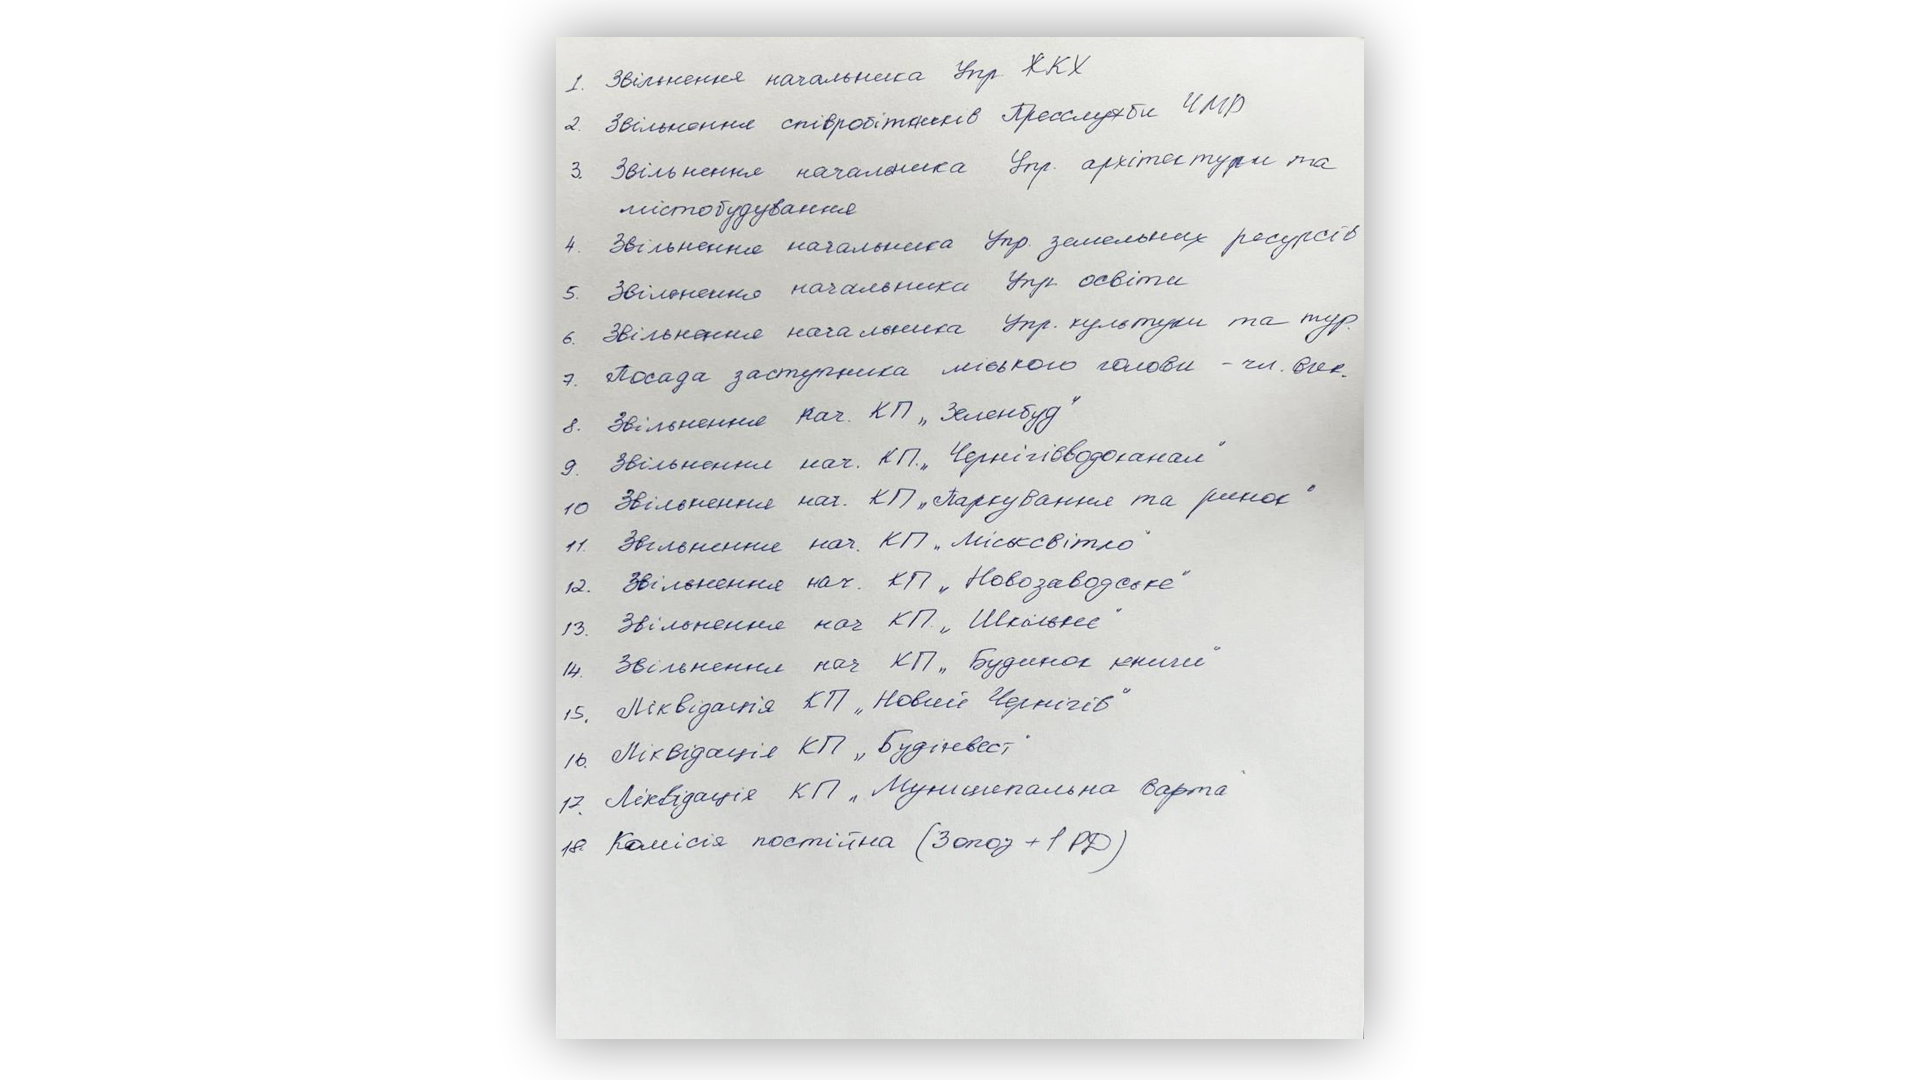 1. Звільнення начальника Упр ЖКХ
2. Звільнення співробітників Пресслужби ЧМР
3. Звільнення начальника Упр. архітектури та
містобудування
4. Звільнення начальника Упр. земельних ресурсів
5. Звільнення начальника Упр. освіти
6. Звільнення начальника Упр. культури та тур.
7. Посада заступника міського голови - чл. вик.
8. Звільнення нач. КП „Зеленбуд"
9. Звільнення нач. КП. „Чернігівводоканал"
10 Звільнення нач. КП „Паркування та ринок"
11. Звільнення нач. КП „Міськсвітло"
12. Звільнення нач. КП „Новозаводське"
13. Звільнення нач КП. „Шкільне"
14. Звільнення нач КП „Будинок книги"
15. Ліквідація КП „Новий Чернігів"
16. Ліквідація КП „Будінвест"
17. Ліквідація КП „Муниципальна варта"
18. Комісія постійна (3 опоз + 1 РД)